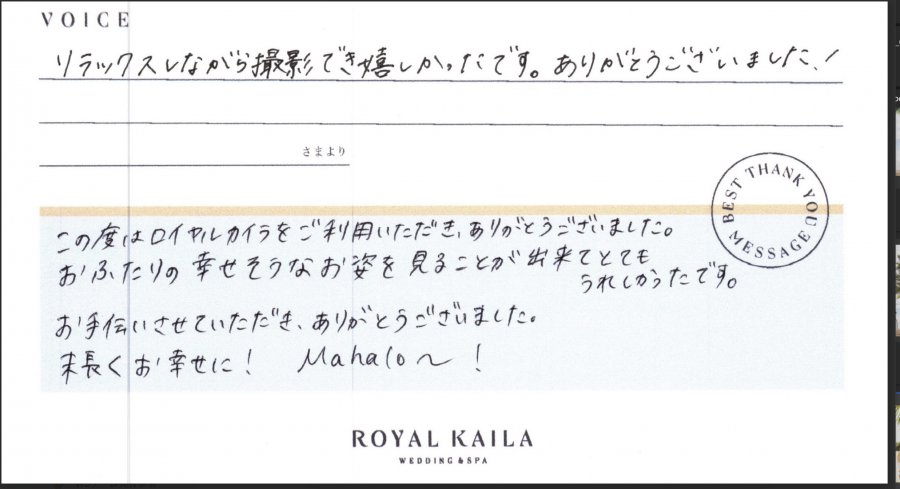 VOICE
リラックスしながら撮影でき嬉しかったです。ありがとうございました!
さまより
BEST THANK YOU MESSAGE
この度はロイヤルカイラをご利用いただき、ありがとうございました。
おふたりの幸せそうなお姿を見ることが出来てとても
うれしかったです。
お手伝いさせていただき、ありがとうございました。
末長くお幸せに! Mahalo〜!
ROYAL KAILA
WEDDING & SPA